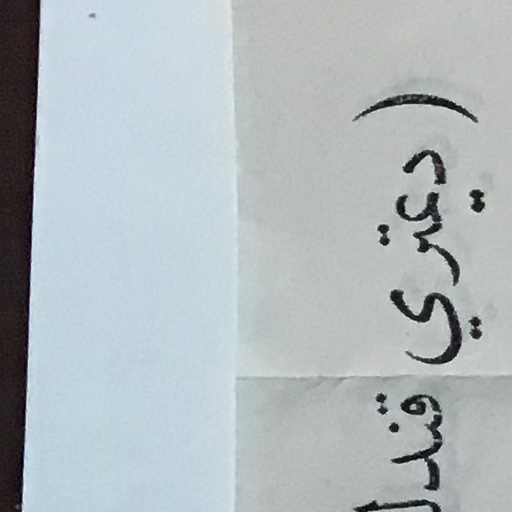 ( ديمتري قندل